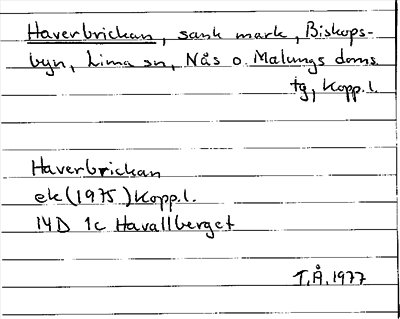 Haverbrickan, sank mark, Biskops-
byn, Lima sn, Nås o. Malungs doms.
tg, Kopp.l.
Haverbrickan
ek (1975) Kopp.l.
14D 1c Havallberget
T.Å. 1977